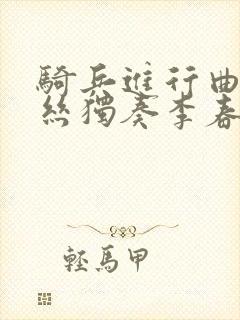 騎兵進行曲
絲獨奏李春
輕馬甲